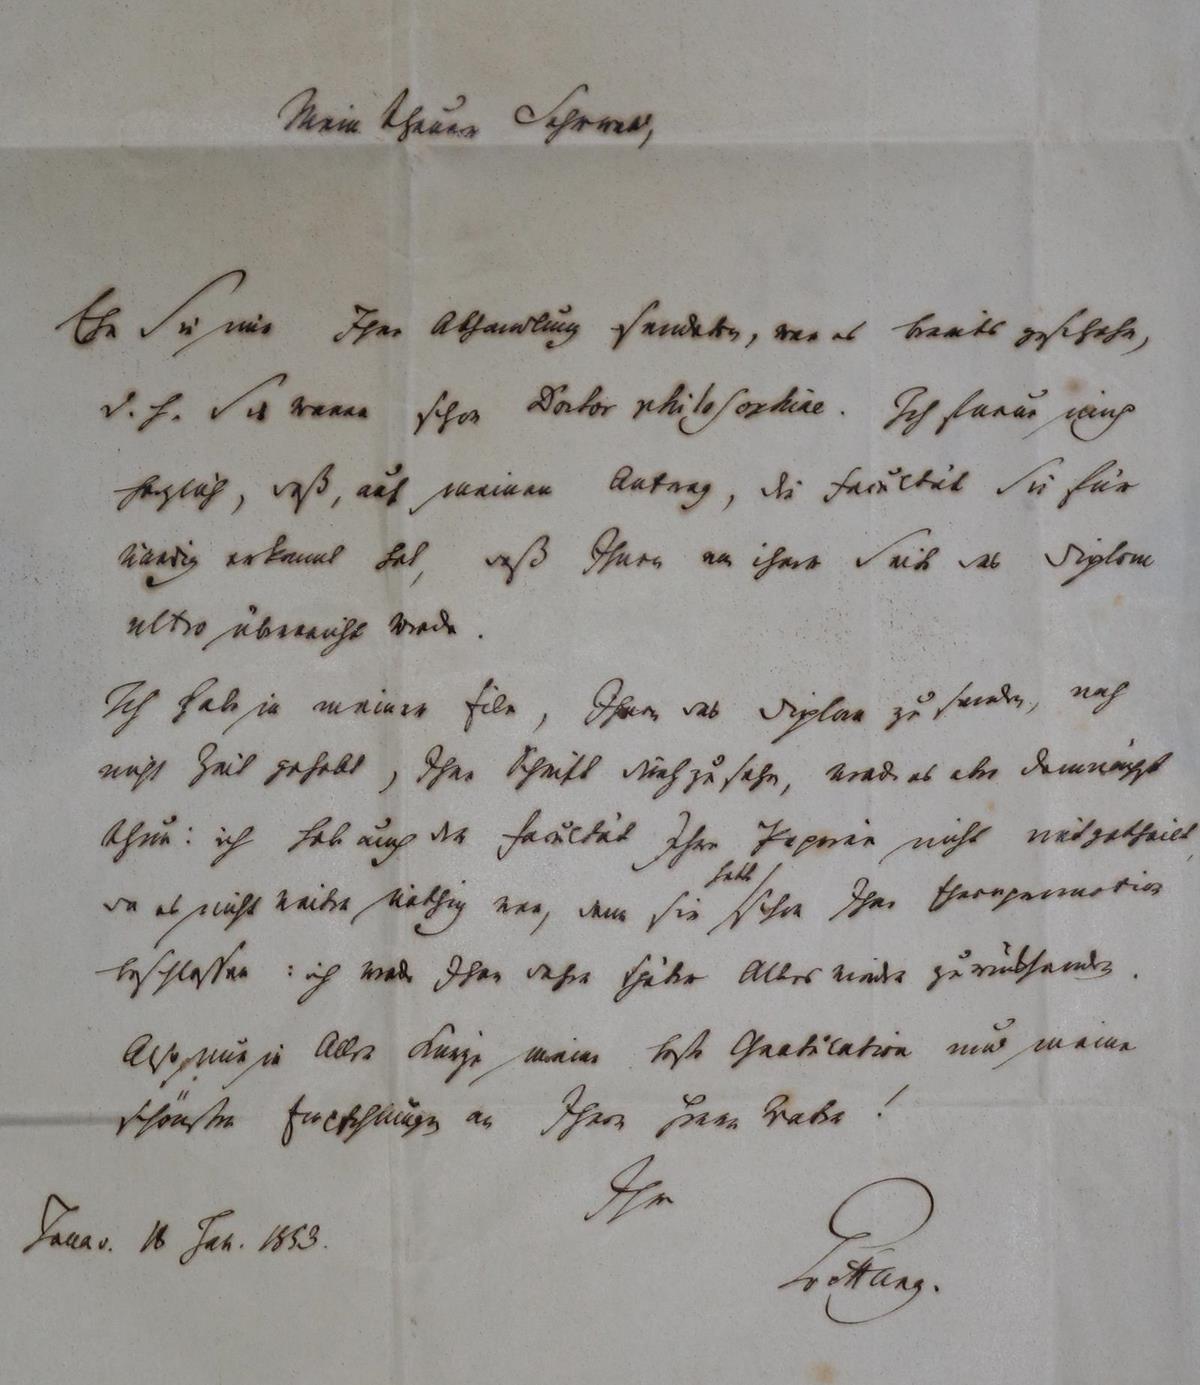 Mein theurer Schwed,
Ehe Sie mir Ihre Abhandlung sendeten, war es bereits geschehn,
d. h. Sie waren schon Doctor philosophiae. Ich freue mich
herzlich, daß, auf meinen Antrag, die Facultät Sie für
würdig erkannt hat, daß Ihnen von ihrer Seite das Diplom
ultro überreicht werde.
Ich habe in meiner Eile, Ihnen das Diplom zu senden, noch
nicht Zeit gehabt, Ihre Schrift durchzusehn, werde es aber demnächst
thun: ich habe auch der Facultät Ihre Papiere nicht mitgetheilt,
da es nicht weiter nöthig war, denn sie hatte schon Ihre Ehrenpromotion
beschlossen: ich werde Ihnen daher später Alles wieder zurücksenden.
Also nur in aller Kürze meine beste Gratulation und meine
schönsten Empfehlungen an Ihren Herrn Vater!
Ihr
Jena d. 18 Jan. 1853.
Göttling.